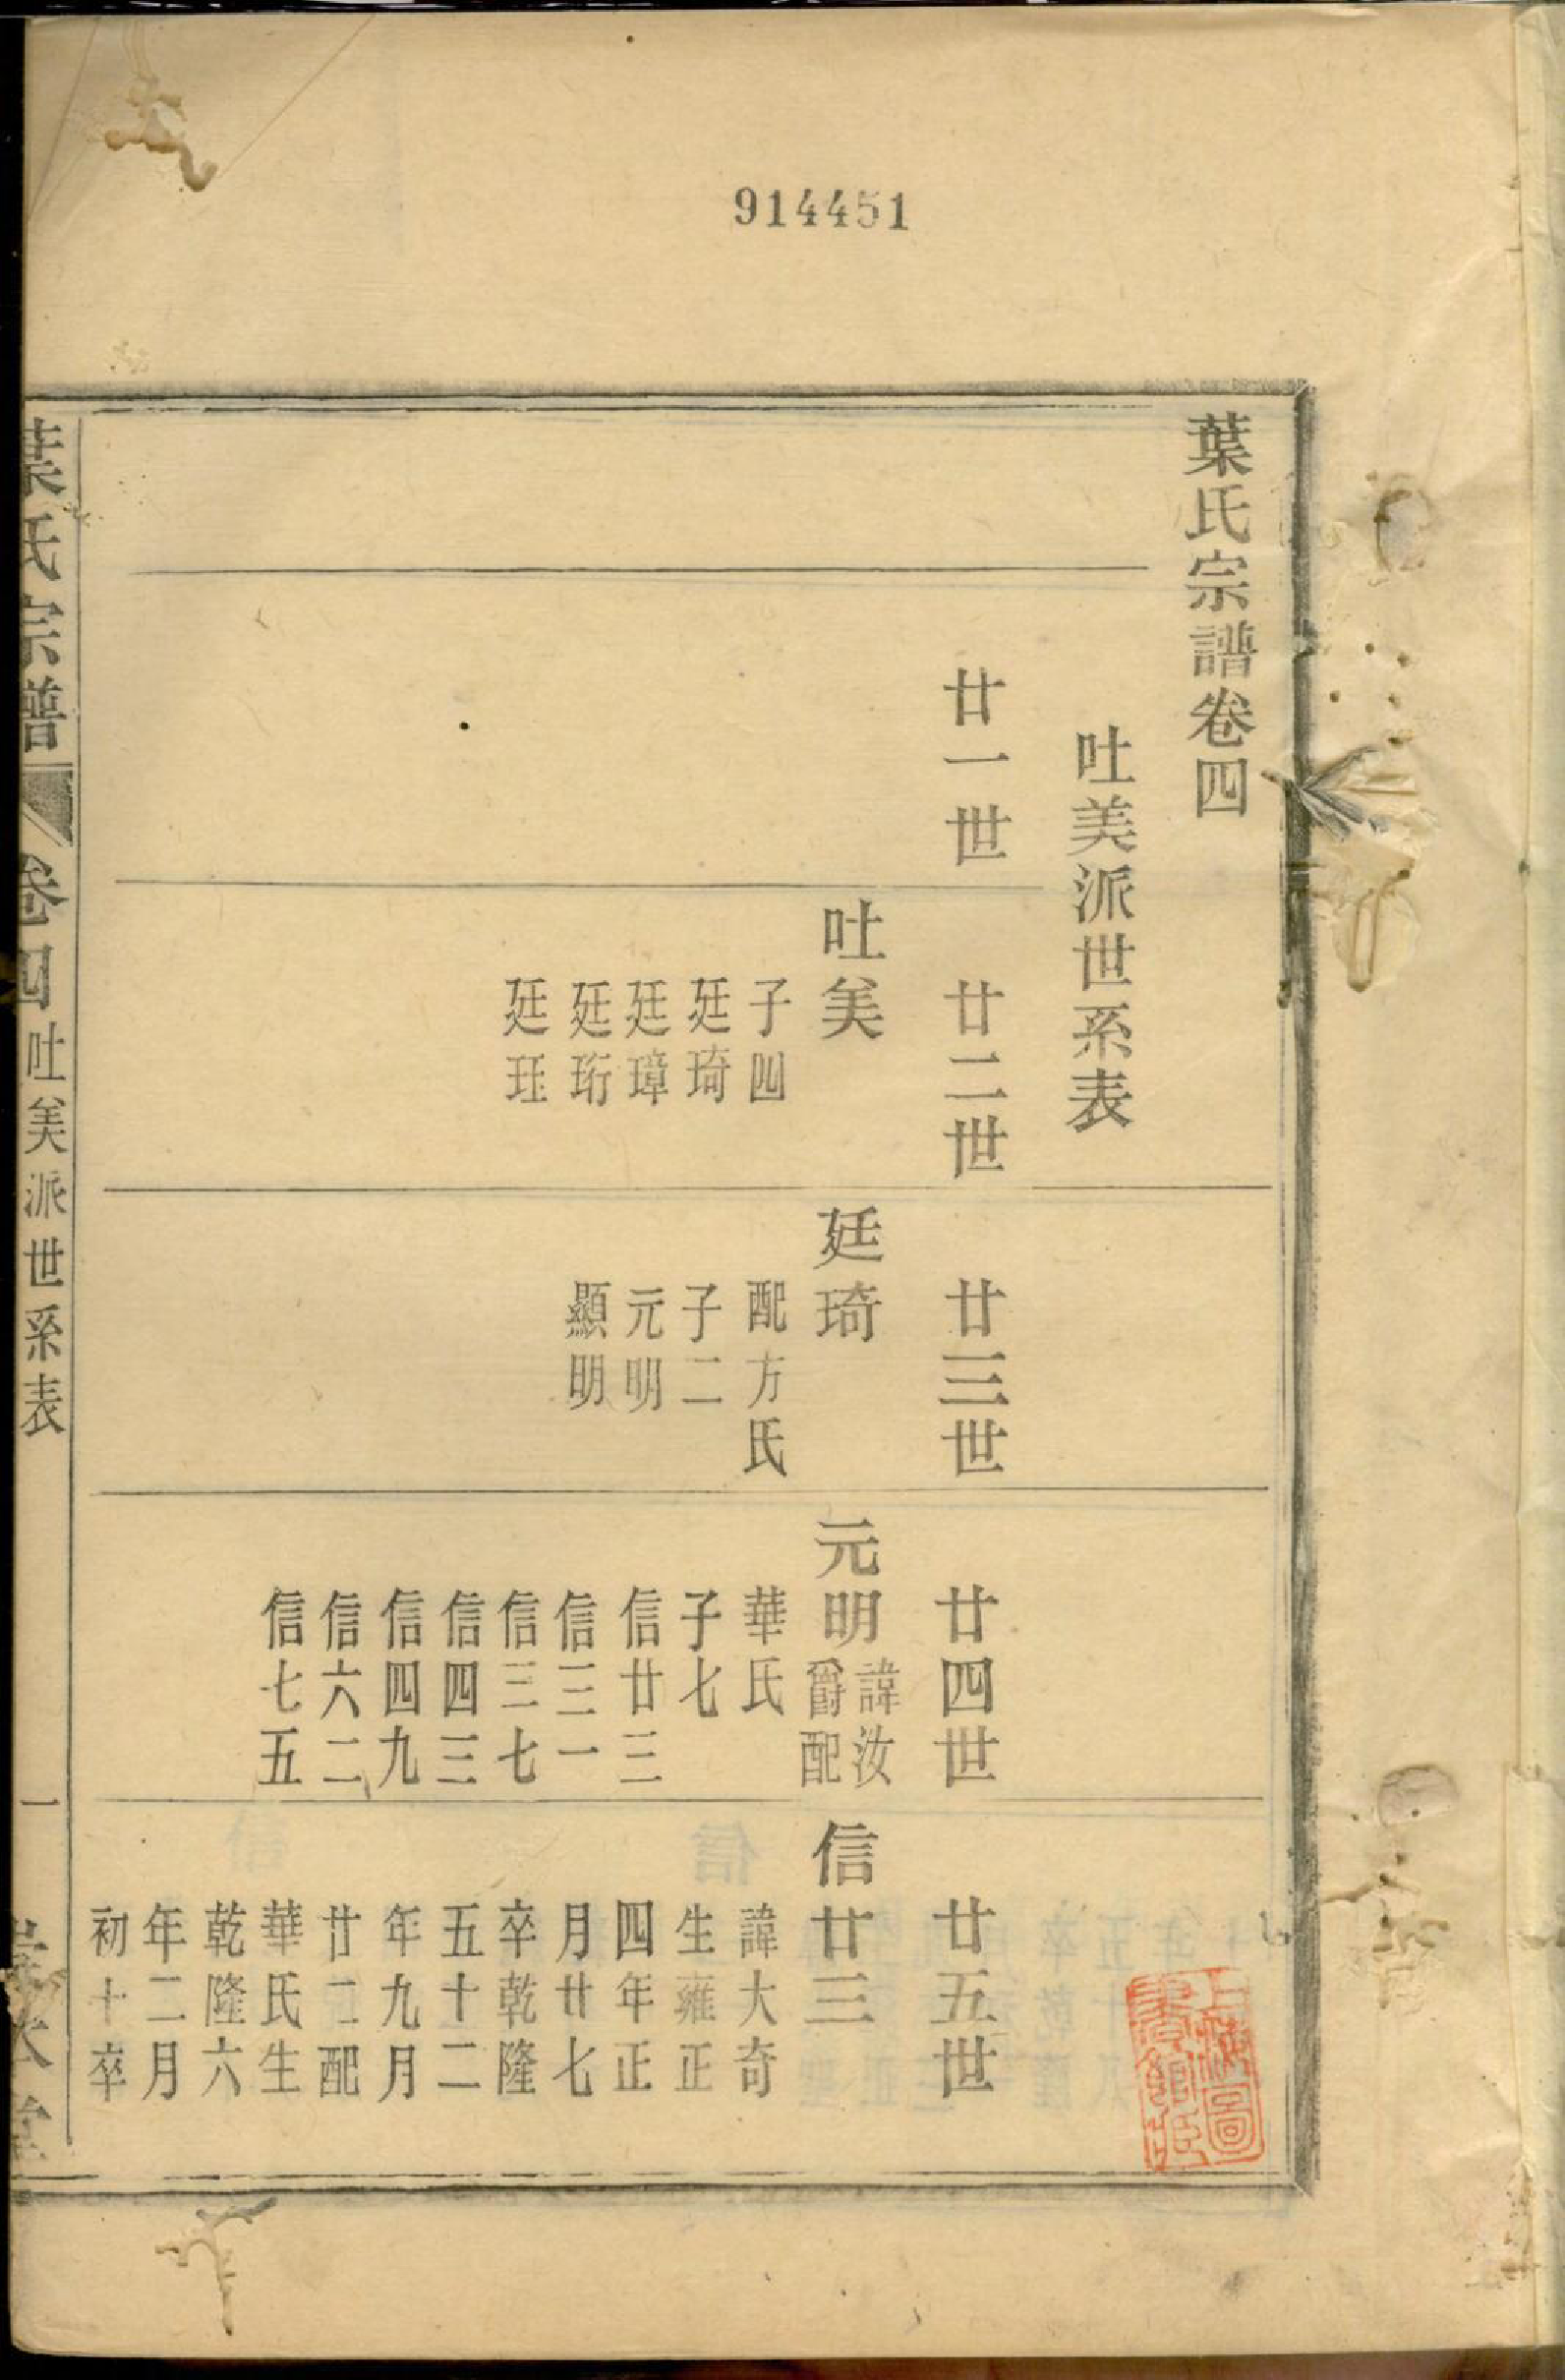 914451
葉氏宗譜卷四
吐美派世系表
廿一世
廿二世
廿三世
廿四世
廿五世
吐美
子四
廷琦
廷璋
廷珩
廷珏
廷琦
配方氏
子二
元明
顯明
元明
諱汝
爵配
華氏
子七
信廿三
信三一
信三七
信四三
信四九
信六二
信七五
信廿三
諱大奇
生雍正
四年正
月廿七
卒乾隆
五十二
年九月
廿二配
華氏生
乾隆六
年二月
初十卒
葉氏宗譜
卷四
吐美派世系表
一
上海圖
書館藏